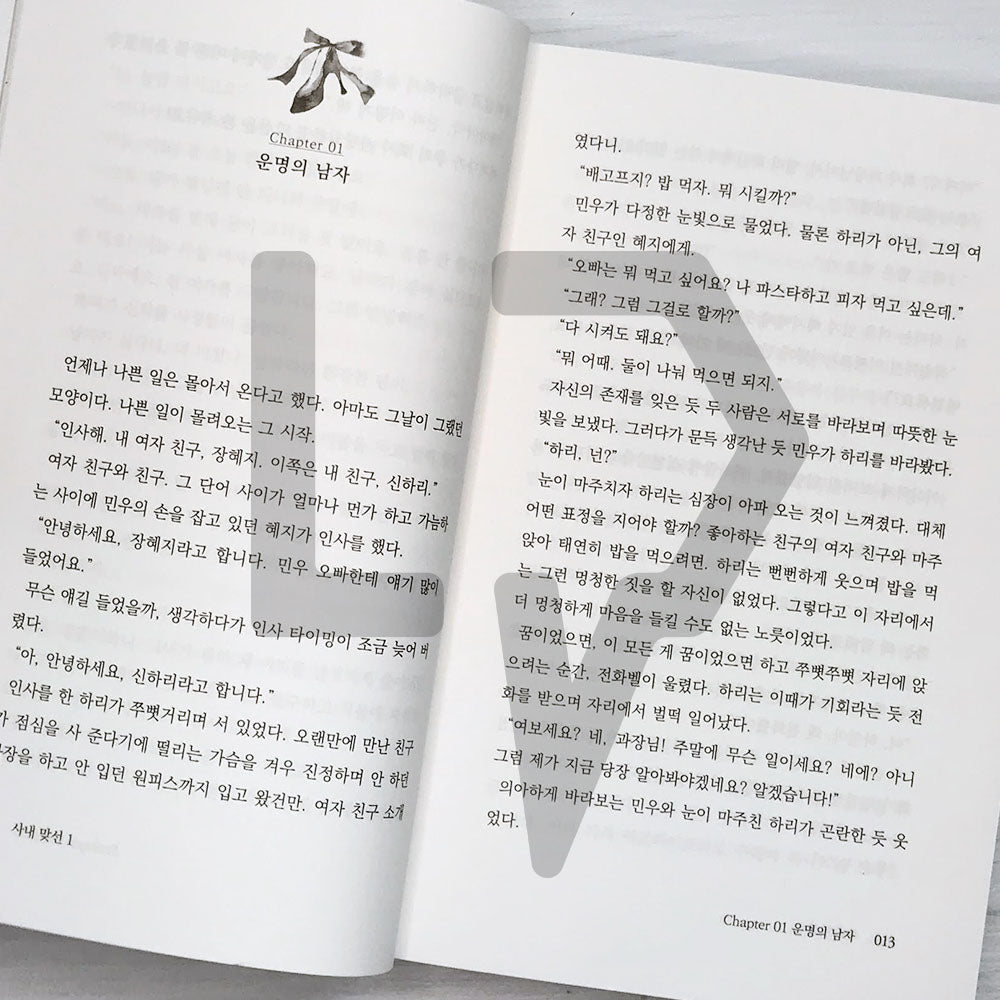 Chapter 01
운명의 남자
언제나 나쁜 일은 몰아서 온다고 했다. 아마도 그날이 그랬던
모양이다. 나쁜 일이 몰려오는 그 시작.
“인사해. 내 여자 친구, 장혜지. 이쪽은 내 친구, 신하리.”
여자 친구와 친구. 그 단어 사이가 얼마나 먼가 하고 가늠하
는 사이에 민우의 손을 잡고 있던 혜지가 인사를 했다.
“안녕하세요, 장혜지라고 합니다. 민우 오빠한테 얘기 많이
들었어요.”
무슨 얘길 들었을까, 생각하다가 인사 타이밍이 조금 늦어 버
렸다.
“아, 안녕하세요, 신하리라고 합니다.”
인사를 한 하리가 쭈뼛거리며 서 있었다. 오랜만에 만난 친구
가 점심을 사 준다기에 떨리는 가슴을 겨우 진정하며 안 하던
장을 하고 안 입던 원피스까지 입고 왔건만. 여자 친구 소개
사내 맞선 1
였다니.
“배고프지? 밥 먹자. 뭐 시킬까?”
민우가 다정한 눈빛으로 물었다. 물론 하리가 아닌, 그의 여
자 친구인 혜지에게.
“오빠는 뭐 먹고 싶어요? 나 파스타하고 피자 먹고 싶은데.”
“그래? 그럼 그걸로 할까?”
“다 시켜도 돼요?”
“뭐 어때. 둘이 나눠 먹으면 되지.”
자신의 존재를 잊은 듯 두 사람은 서로를 바라보며 따뜻한 눈
빛을 보냈다. 그러다가 문득 생각난 듯 민우가 하리를 바라봤다.
“하리, 넌?”
눈이 마주치자 하리는 심장이 아파 오는 것이 느껴졌다. 대체
어떤 표정을 지어야 할까? 좋아하는 친구의 여자 친구와 마주
앉아 태연히 밥을 먹으려면. 하리는 뻔뻔하게 웃으며 밥을 먹
는 그런 멍청한 짓을 할 자신이 없었다. 그렇다고 이 자리에서
더 멍청하게 마음을 들킬 수도 없는 노릇이었다.
꿈이었으면, 이 모든 게 꿈이었으면 하고 쭈뼛쭈뼛 자리에 앉
으려는 순간, 전화벨이 울렸다. 하리는 이때가 기회라는 듯 전
화를 받으며 자리에서 벌떡 일어났다.
“여보세요? 네, 과장님! 주말에 무슨 일이세요? 네에? 아니
그럼 제가 지금 당장 알아봐야겠네요? 알겠습니다!”
의아하게 바라보는 민우와 눈이 마주친 하리가 곤란한 듯 웃
었다.
Chapter 01 운명의 남자 013